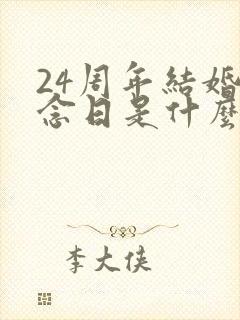 24周年結婚
念日是什麼
李大俠